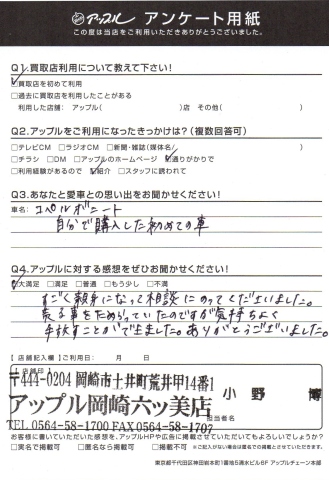 アップル アンケート用紙
この度は当店をご利用いただきありがとうございました。
Q1.買取店利用について教えて下さい!
□買取店を初めて利用
□過去に買取店を利用したことがある
利用した店舗: アップル( )店 その他( )
Q2.アップルをご利用になったきっかけは?(複数回答可)
□テレビCM □ラジオCM □新聞・雑誌(媒体名/ )
□チラシ □DM □アップルのホームページ □通りがかりで
□利用経験があるので □紹介 □スタッフに誘われて
Q3.あなたと愛車との思い出をお聞かせください!
車名:コペルボニート
自分で購入した初めての車
Q4.アップルに対する感想をぜひお聞かせください!
□大満足 □満足 □普通 □もう少し □不満
すごく親身になって相談にのってくださいました。
売る事をためらっていたのですが気持ちよく
手放すことができました。ありがとうございました。
【店舗記入欄】ご利用日: 月 日
【店舗印】
〒444-0204 岡崎市土井町荒井甲14番1
アップル岡崎六ツ美店
小野 博
担当者名
TEL 0564-58-1700 FAX 0564-58-1707
お客様に書いていただいた感想を、アップルHPや広告に掲載させていただいてもよろしいでしょうか?
□実名で掲載可 □匿名なら掲載可 □掲載不可 ※ご記入がない場合は匿名での掲載とさせていただきます。
東京都千代田区神田岩本町1番地5清水ビル6F アップルチェーン本部